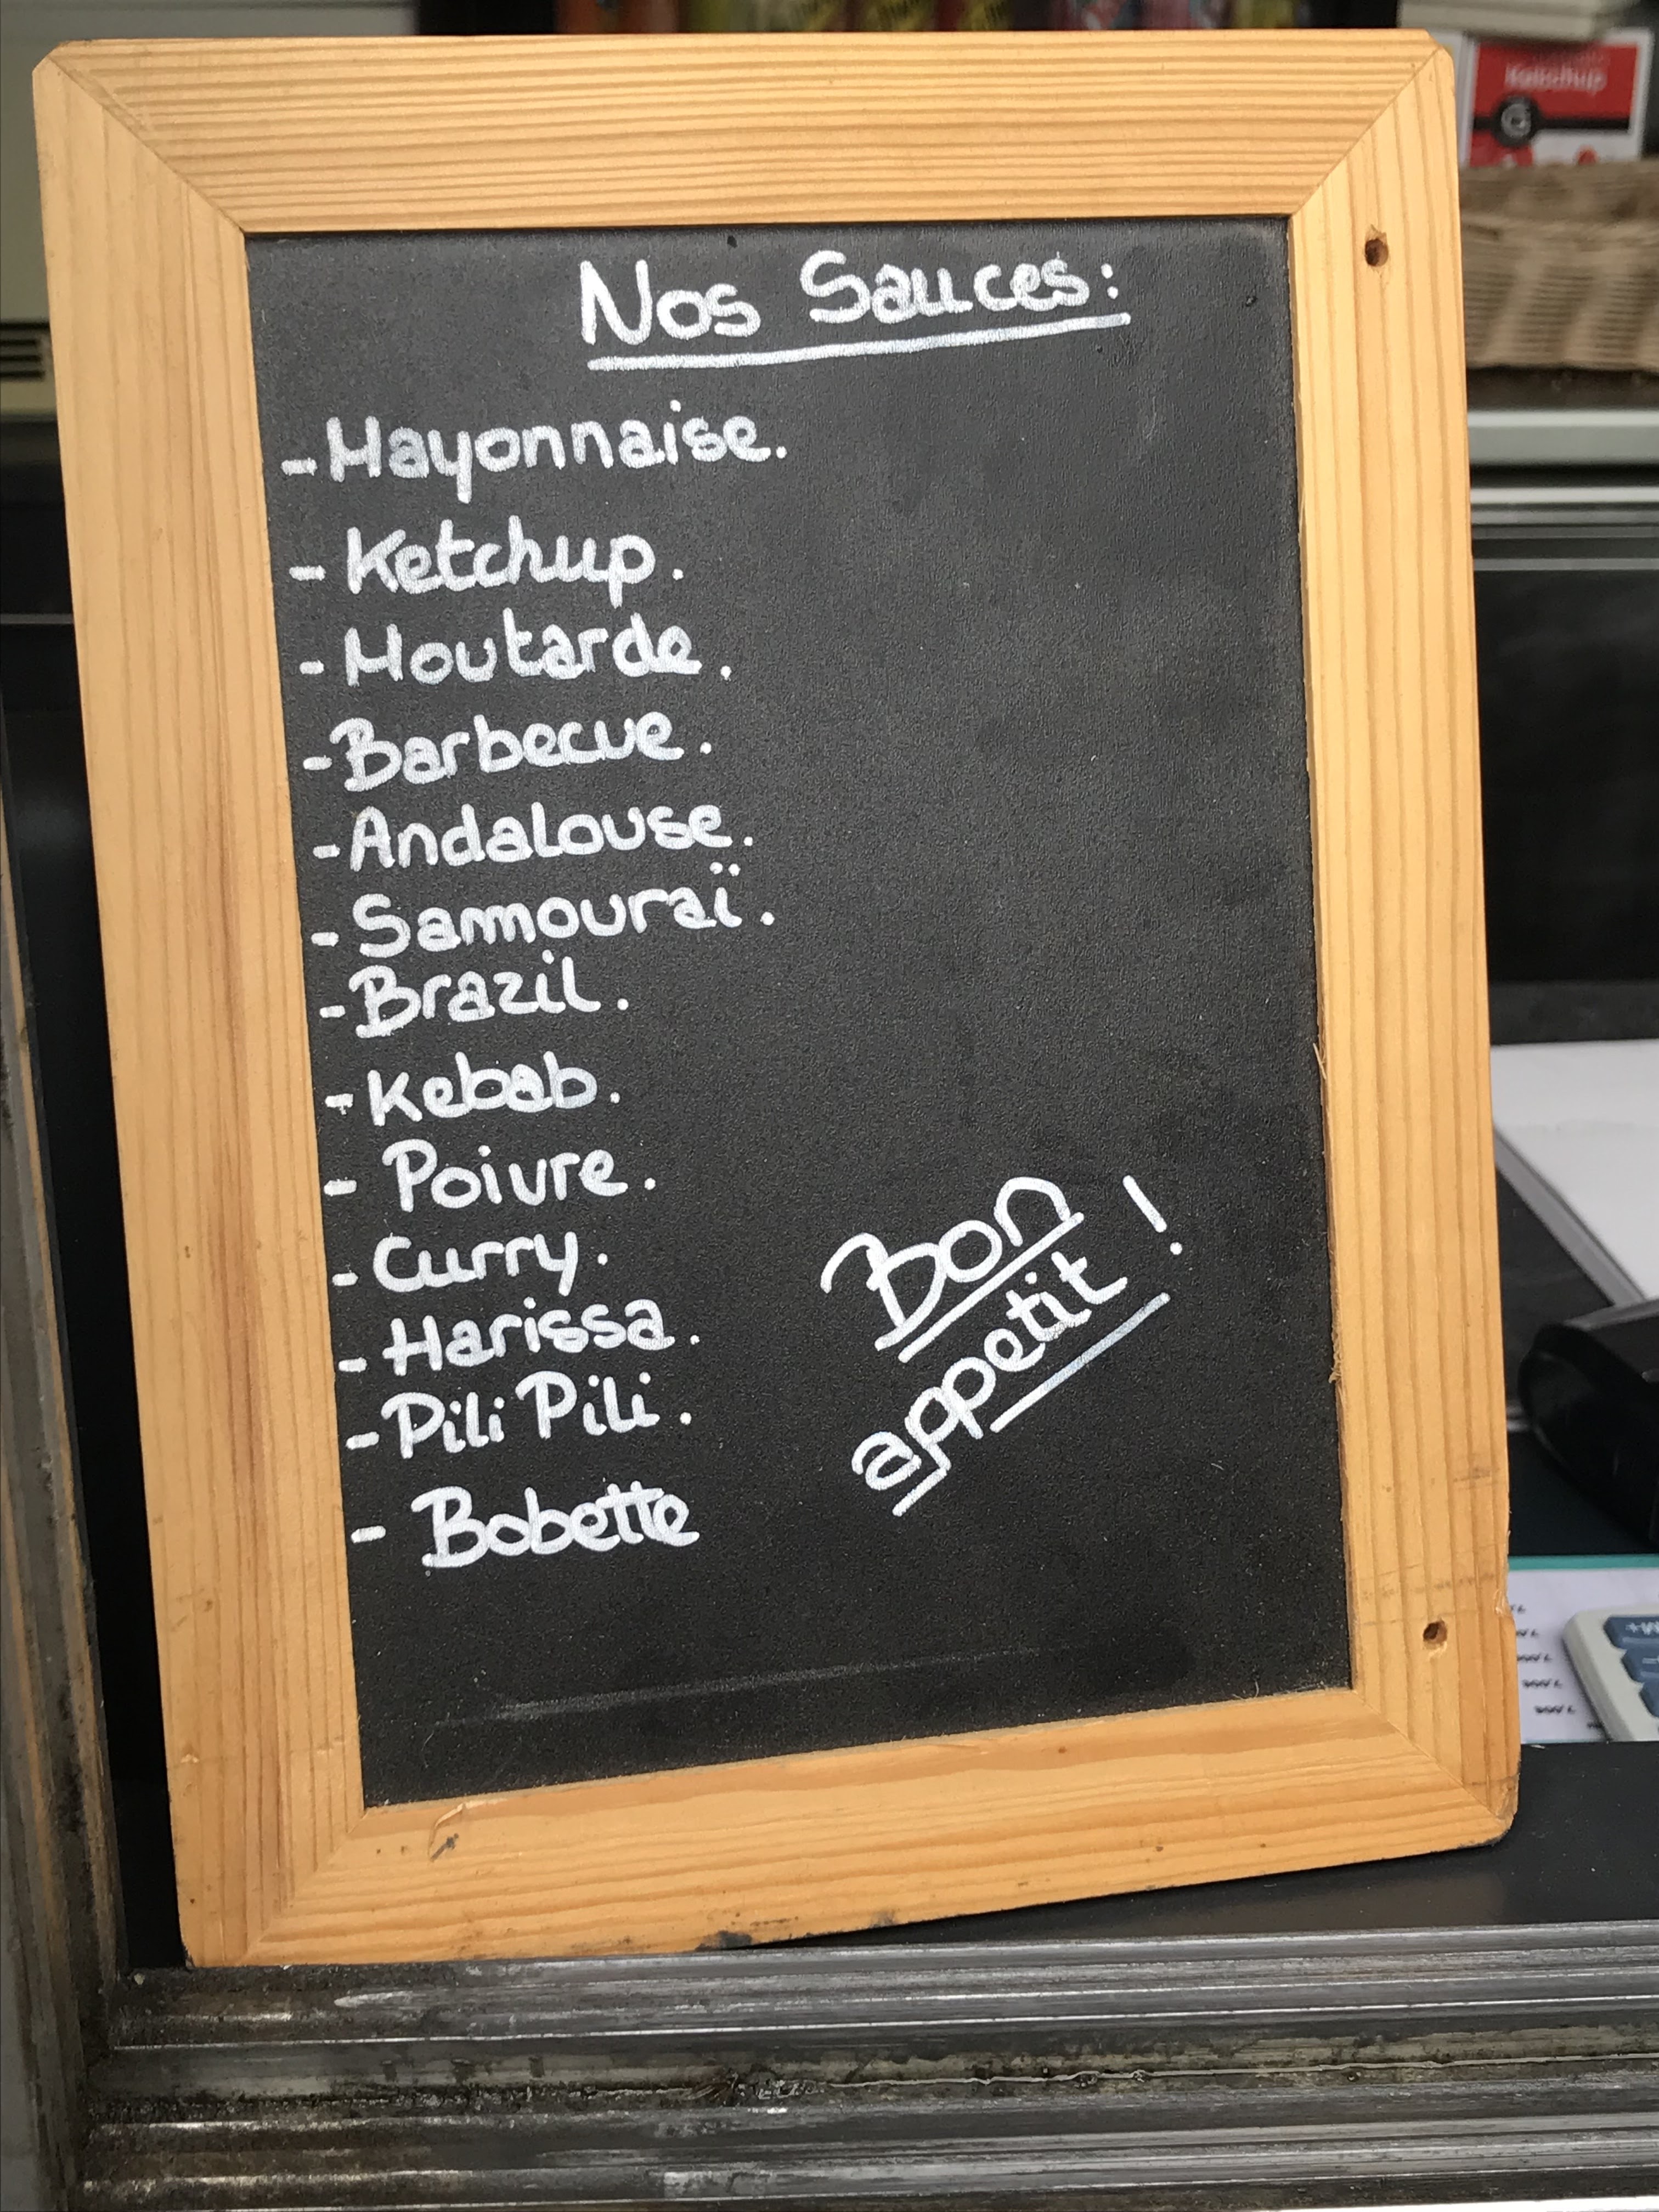 Nos Sauces:
- Mayonnaise.
- Ketchup.
- Moutarde.
- Barbecue.
- Andalouse.
- Sammouraï.
- Brazil.
- Kebab.
- Poivre.
- Curry.
- Harissa.
- Pili Pili.
- Bobette
Bon
appetit !
Ketchup